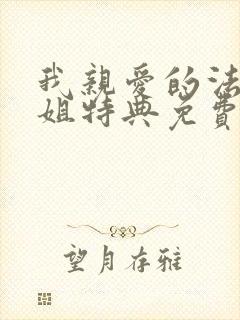 我親愛的法
姐特典免費
望月存雅